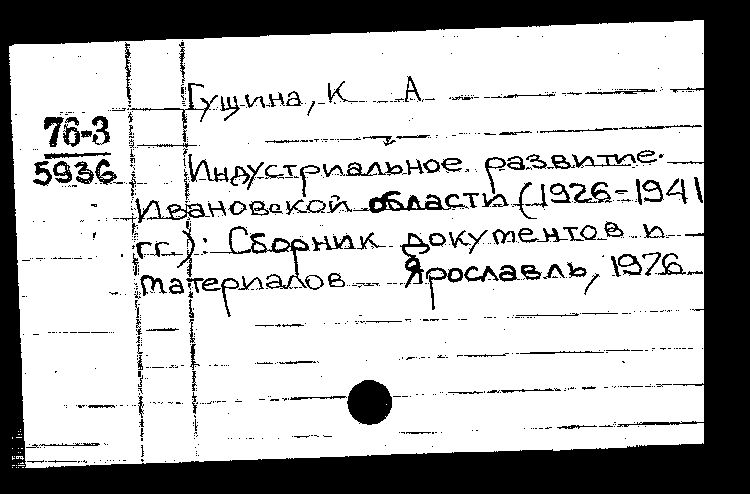 Гущина, К А
76-3
5936
Индустриальное развитие
Ивановской области (1926-1941
гг.): Сборник документов и
материалов Ярославль, 1976